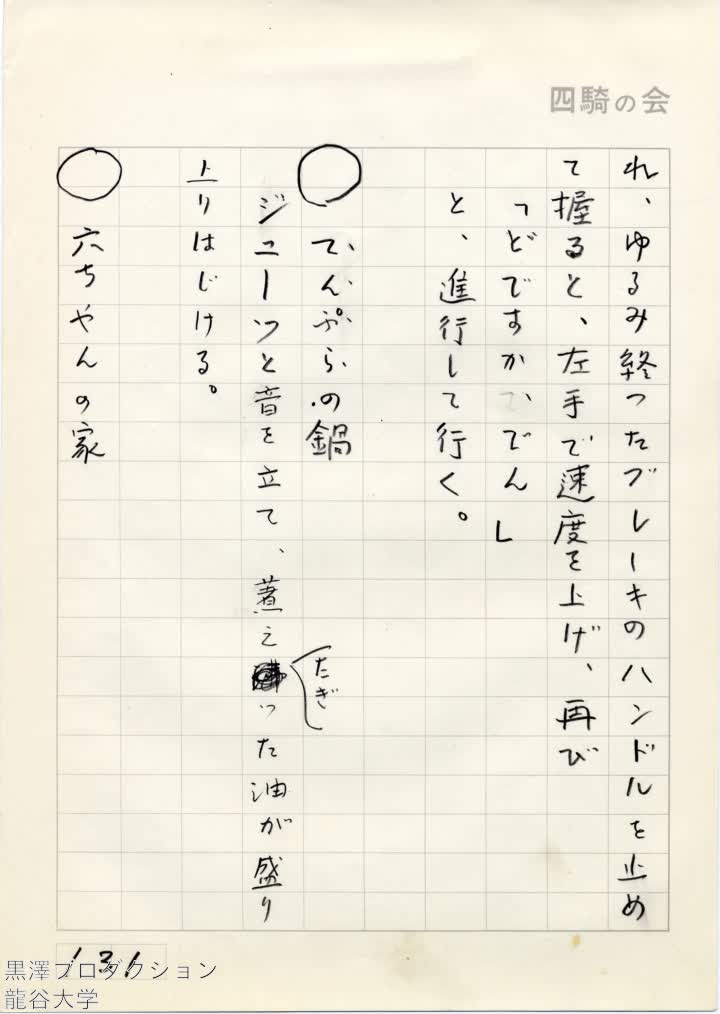 四騎の会
れ、ゆるみ終ったブレーキのハンドルを止め
て握ると、左手で速度を上げ、再び
「どですかでん」
と、進行して行く。
○ てんぷらの鍋
ジューッと音を立て、煮えたぎった油が盛り
上りはじける。
○ 六ちゃんの家
131
黒澤プロダクション
龍谷大学